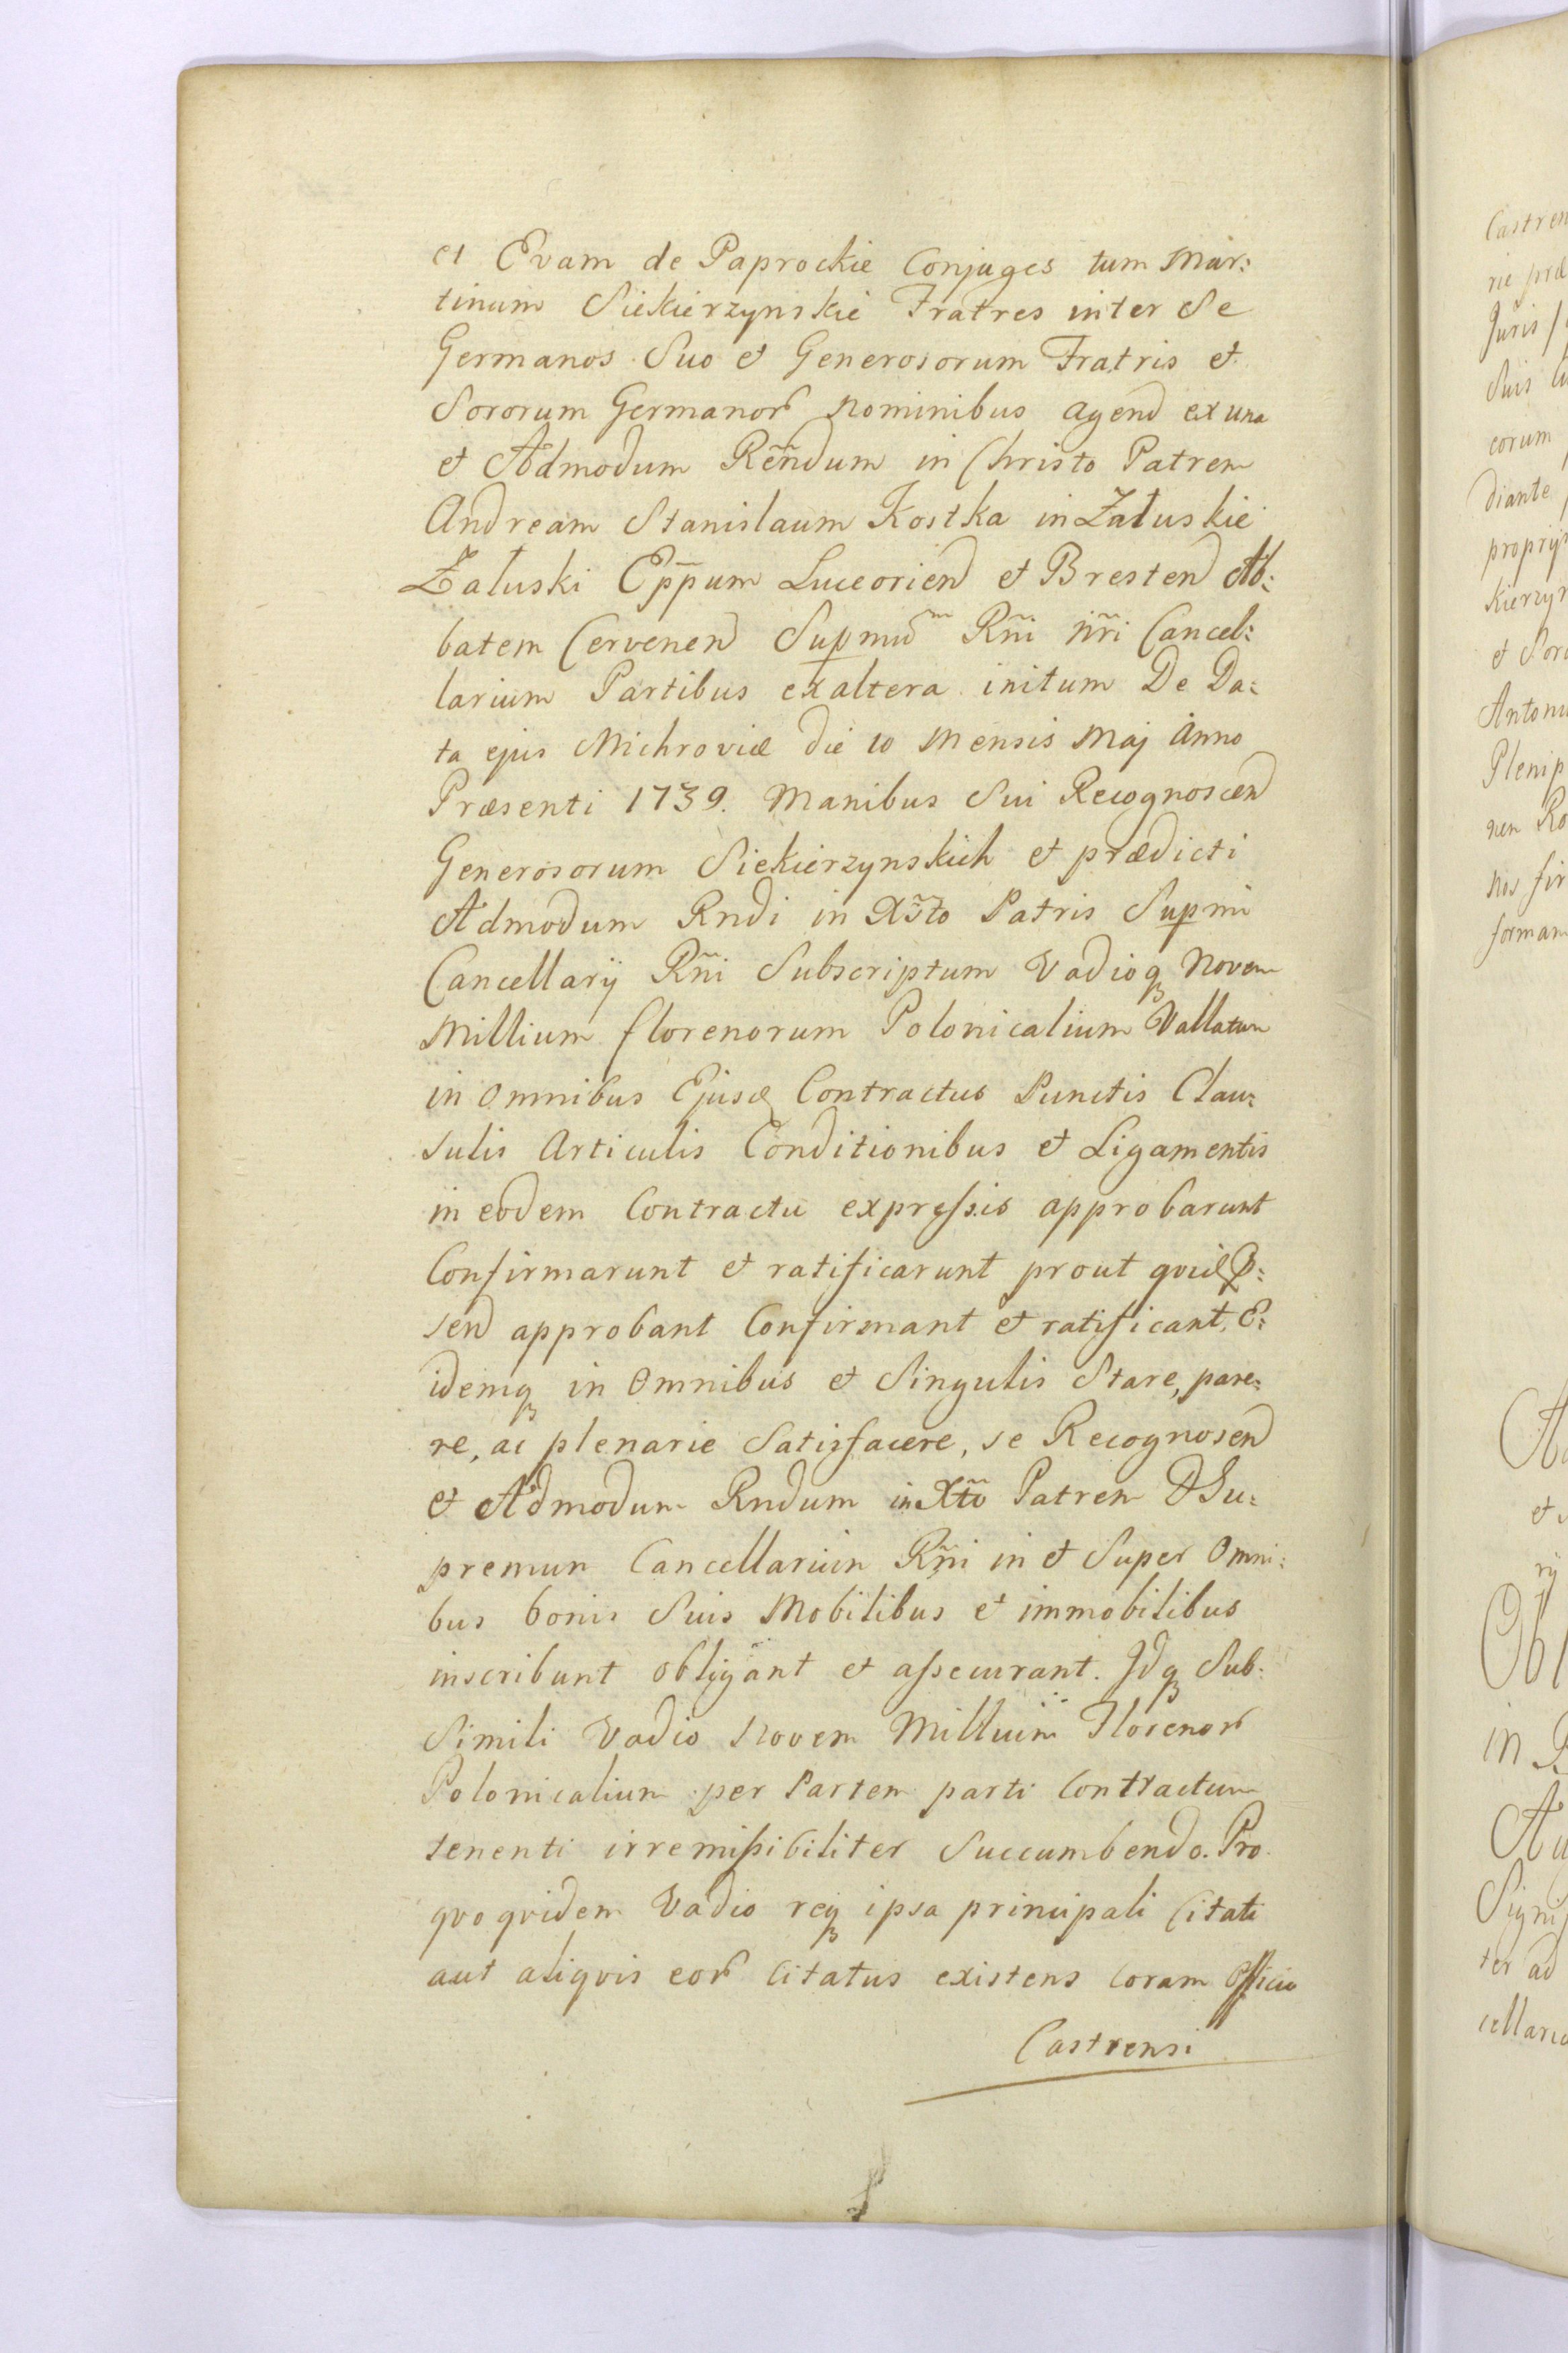 et Evam de Paprockie Conjuges tum Mar:
tinum Siekierzynskie Fratres inter Se
Germanos Suo et Generosorum Fratris et
Sororum Germanor Nominibus agend ex una
et Admodum Rẽndum in Christo Patrem
Andream Stanislaum Kostka in Załuskie
Załuski Epp̃um Luceorien et Bresten Ab:
batem Cervenen Supmu͂m Rñi ñri Cancel:
larium Partibus ex altera initum De Da:
ta ejus Michroviæ die 10 Mensis Maj Anno
Præsenti 1739. Manibus Sui Recognoscen
Generosorum Siekierzynskich et prædicti
Admodum Rndi in Xs̃to Patris Supmi
Cancellarij Rñi Subscriptum Vadioq Novem
Millium florenorum Polonicalium Vallatum
in Omnibus Ejusd Contractus Punctis Clau:
sulis Articulis Conditionibus et Ligamentis
in eodem Contractu expressis approbarunt
Confirmarunt et ratificarunt prout
sen approbant Confirmant et ratificant, E:
idemq in Omnibus et Singulis Stare, pare:
re, ac plenarie Satisfacere, se Recognosen
et Admodum Rndum in Xtõ Patrem D Su:
premum Cancellarium Rñi in et Super Omni:
bus bonis Suis Mobilibus et immobilibus
inscribunt obligant et assecurant. Idq Sub:
Simili Vadio Novem Millium Florenor
Polonicalium per Partem parti Contractum
tenenti irremissibiliter Succumbendo. Pro
qvo qvidem Vadio req ipsa principali Citati
aut aliqvis eor Citatus existens Coram Officio
Castrensi
Castren
Juris
Suis
eorum
diante
kierzyn
Plenip
nen Ro
nos fir
in
ter ad